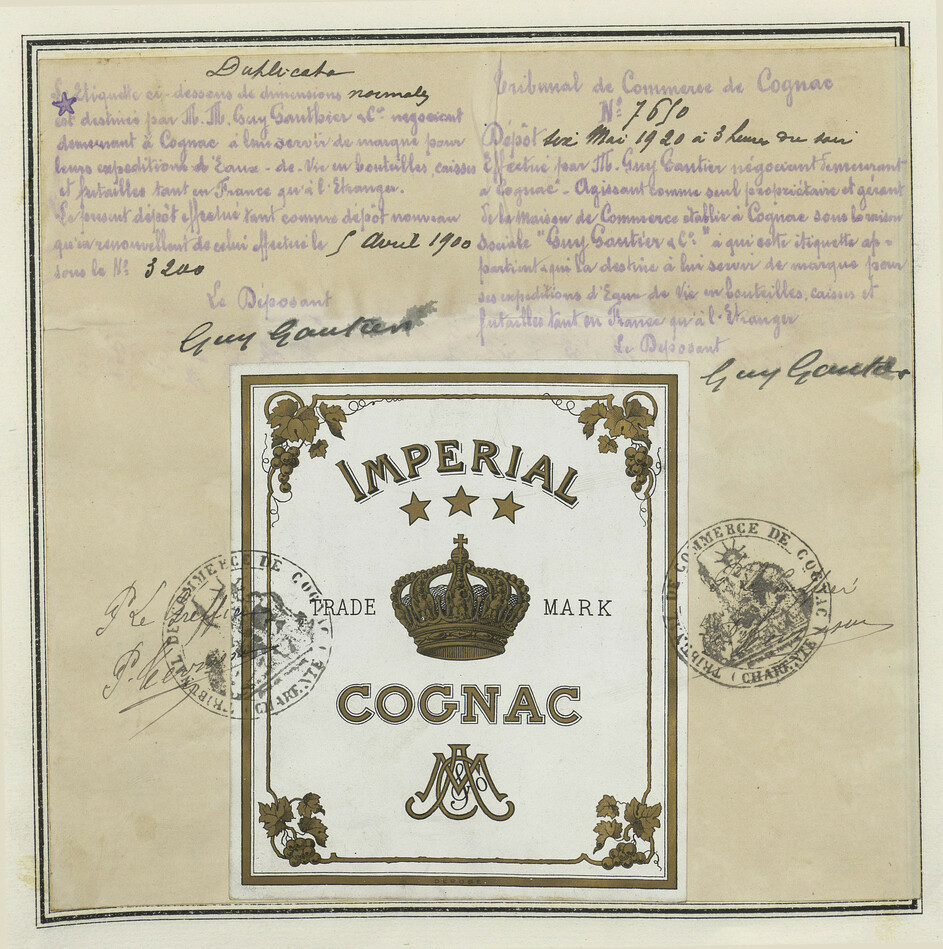 Duplicata
L'Etiquette ci-dessous de dimensions normales
est destinée par M. M. Guy Gauthier & Cie négociant
demeurant à Cognac à lui servir de marque pour
leurs expéditions d'Eaux-de-Vie en bouteilles, caisses
et futailles tant en France qu'à l'Etranger.
Le present dépôt effectué tant comme dépôt nouveau
qu'en renouvellent de celui effectué le 5 Avril 1900
sous le No 3200
Le Déposant
Guy Gautier
Tribunal de Commerce de Cognac
No 7650
Dépôt six Mai 1920 à 3 heures du soir
Effectué par M. Guy Gautier négociant demeurant
à Cognac - Agissant comme seul propriétaire et gérant
de la Maison de Commerce établie à Cognac sous la raison
Sociale "Guy Gautier & Co" à qui cette étiquette ap=
partient & qui la destine à lui servir de marque pour
ses expéditions d'Eaux-de-Vie en bouteilles, caisses et
futailles tant en France qu'à l'Etranger
Le Déposant
Guy Gautier
IMPERIAL
TRADE MARK
COGNAC
TRIBUNAL DE COMMERCE DE COGNAC
(CHARENTE)
P. Le Greffier
TRIBUNAL DE COMMERCE DE COGNAC
(CHARENTE)
DÉPOSÉ